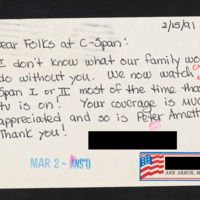 2/15/91
Dear Folks at C-Span:
I don't know what our family wo
do without you. We now watch
Span I or II most of the time tha
tv is on! Your coverage is muc
appreciated and so is Peter Arnett
Thank you!
MAR 2 - ANS'D
ANN ARBOR, M